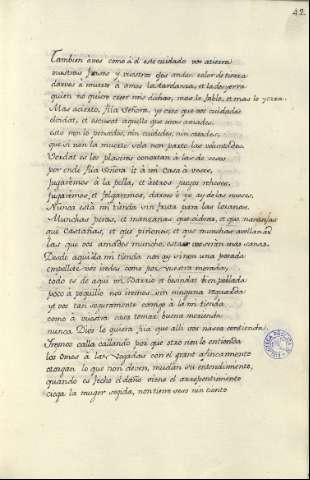 42
Tambien á vos como á él este cuidado vos atierra
vuestras fasces y vuestros ojos andan color de tierra
darvos á muerte á amos la tardanza, et la desyerra
quien no quiere creer mis dichos, mas lo fabla, et mas lo yerra.
Mas acierto, fija Señora, yo creo que vos cuidades
olvidar, et escusar aquello que mas amades
esto non lo pensedes, nin cuidedes, nin creades,
que si non la muerte sola non parte las voluntades.
Verdat es los placeres conortan á las de veces
por ende fija Señora it á mi casa á veces,
jugaremos á la pella, et á otros juegos reheces,
Jugaredes, et folgaredes, darvos é yo ay de las nueces.
Nunca está mi tienda sin fruta para las lozanas.
Munchas peras, et manzanas que cidras, et que naranjas
que Castañas, et que piñones, et que munchas avellanas
las que vos amades muncho, estas vos serán mas sanas.
Desde aquí á la mi tienda non ay si non una pasada
en pellote vos iredes como por vuestra morada,
todo es de aquí un Barrio et besindat bien poblada
poco á poquillo nos iremos sin ninguna
et vos tan seguramente comigo á la mi tienda
como á vuestra casa tomar buena merienda
nunca Dios lo quiera fija que allí vos nasca contienda
Iremos calla callando por que otro non lo entienda
los omes á las vegadas con el grant afincamiento
otorgan lo que non deven, mudan su entendimiento,
quando es fecho el daño viene el arrepentimiento
ciega la muger seguida, non tiene seso nin tiento